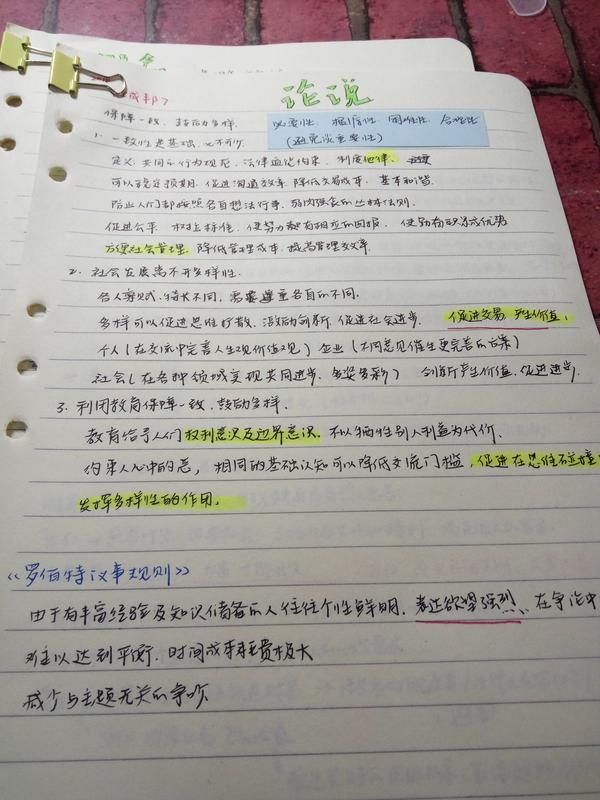 论说
保障一致、鼓励多样.
必要性. 根本性. 合理性
(避免谈重要性)
1. 一致性是基础, 必不可少.
定义: 共同的行为规范、法律道德约束、制度他律.
可以稳定预期、促进沟通效率. 降低交易成本、基本和谐.
防止人们都按照各自想法行事. 弱肉强食的丛林法则.
促进公平. 树立标准, 使努力都有相应的回报. 使勤奋
方便社会管理. 降低管理成本. 提高管理效率.
2. 社会发展离不开多样性.
各人形式、特长不同, 需要尊重各自的不同.
多样可以促进思维扩散、激励创新. 促进社会进步. 促进交易. 产生价值.
个人(在交流中完善人生观价值观) 企业(不同意见催生更完善的方案)
社会(在各种领域实现共同进步. 多姿多彩) 创新产生价值. 促进进步.
3. 利用教育保障一致、鼓励多样.
教育给予人们权利意识及边界意识. 不以牺牲别人利益为代价.
约束人心中的恶, 相同的基础认知可以降低交流门槛, 促进在思维碰撞
发挥多样性的作用.
《罗伯特议事规则》
由于有丰富经验及知识储备的人往往个性鲜明、表达欲望强烈, 在争论中
难以达到平衡. 时间成本耗费极大
减少与主题无关的争吵